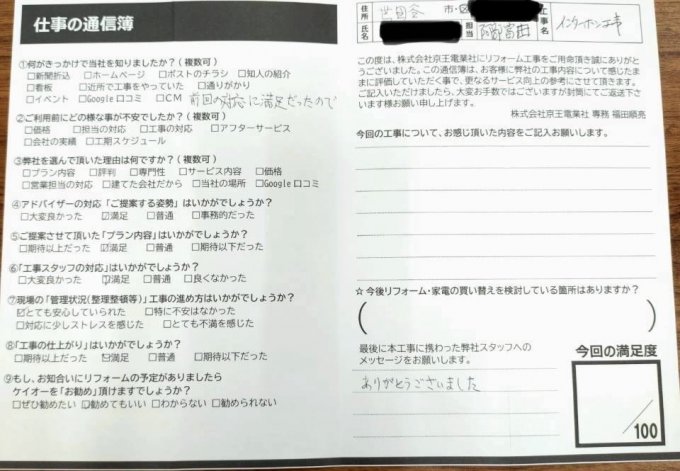 仕事の通信簿
①何がきっかけで当社を知りましたか？(複数可)
□新聞折込 □ホームページ □ポストのチラシ □知人の紹介
□看板 □近所で工事をやっていた □通りがかり
□イベント □Google口コミ □CM 前回の対応に満足だったので
②ご利用前にどの様な事が不安でしたか？(複数可)
□価格 □担当の対応 □工事の対応 □アフターサービス
□会社の実績 □工期スケジュール
③弊社を選んで頂いた理由は何ですか？(複数可)
□プラン内容 □評判 □専門性 □サービス内容 □価格
□営業担当の対応 □建てた会社だから □当社の場所 □Google口コミ
④アドバイザーの対応「ご提案する姿勢」はいかがでしょうか？
□大変良かった ☑満足 □普通 □事務的だった
⑤ご提案させて頂いた「プラン内容」はいかがでしょうか？
□期待以上だった ☑満足 □普通 □期待以下だった
⑥「工事スタッフの対応」はいかがでしょうか？
□大変良かった ☑満足 □普通 □良くなかった
⑦現場の「管理状況(整理整頓等)」工事の進め方はいかがでしょうか？
☑とても安心していられた □特に不安はなかった
□対応に少しストレスを感じた □とても不満を感じた
⑧「工事の仕上がり」はいかがでしょうか？
□期待以上だった ☑満足 □普通 □期待以下だった
⑨もし、お知合いにリフォームの予定がありましたら
ケイオーを「お勧め」頂けますでしょうか？
□ぜひ勧めたい ☑勧めてもいい □わからない □勧められない
住所 世田谷 市・区
氏名 担当 工事名 インターホン工事
この度は、株式会社京王電業社にリフォーム工事をご用命頂き誠にありがとうございました。この通信簿は、お客様に弊社の工事内容について感じたままに評価していただく事で、更なるサービス向上の参考にさせて頂きます。
ご記入いただけましたら、大変お手数ではございますが封筒にてご返送下さいます様お願い申し上げます。
株式会社京王電業社 専務 福田順亮
今回の工事について、お感じ頂いた内容をご記入お願いします。
☆今後リフォーム・家電の買い替えを検討している箇所はありますか？
( )
最後に本工事に携わった弊社スタッフへの
メッセージをお願いします。
ありがとうございました
今回の満足度
/100